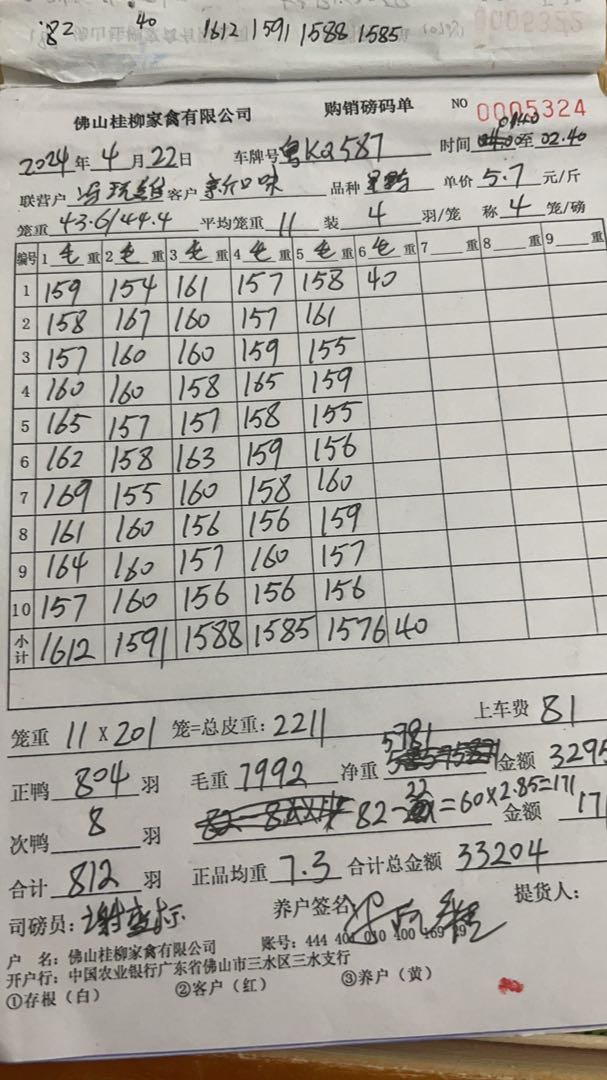 82 40 1612 1591 1588 1585
佛山桂柳家禽有限公司 购销磅码单 NO 0005324
2024年4月22日 车牌号粤KQ587 时间 0140至02.40
联营户 客户 新口味 品种 单价5.7元/斤
笼重43.6/44.4 平均笼重11装4羽/笼 称4笼/磅
编号 1毛重 2毛重 3毛重 4毛重 5毛重 6毛重 7重 8重 9重
1 159 154 161 157 158 40
2 158 167 160 157 161
3 157 160 160 159 155
4 160 160 158 165 159
5 165 157 157 158 155
6 162 158 163 159 156
7 169 155 160 158 160
8 161 160 156 156 159
9 164 160 157 160 157
10 157 160 156 156 156
小计 1612 1591 1588 1585 1576 40
笼重11X201笼=总皮重:2211 上车费81
正鸭804羽 毛重7992 净重5781 金额3295
次鸭8羽 82-22=60×2.85=171 金额171
合计812羽 正品均重7.3 合计总金额33204
司磅员: 养户签名: 提货人:
户 名:佛山桂柳家禽有限公司 账号:444
开户行:中国农业银行广东省佛山市三水区三水支行
①存根(白) ②客户(红) ③养户(黄)